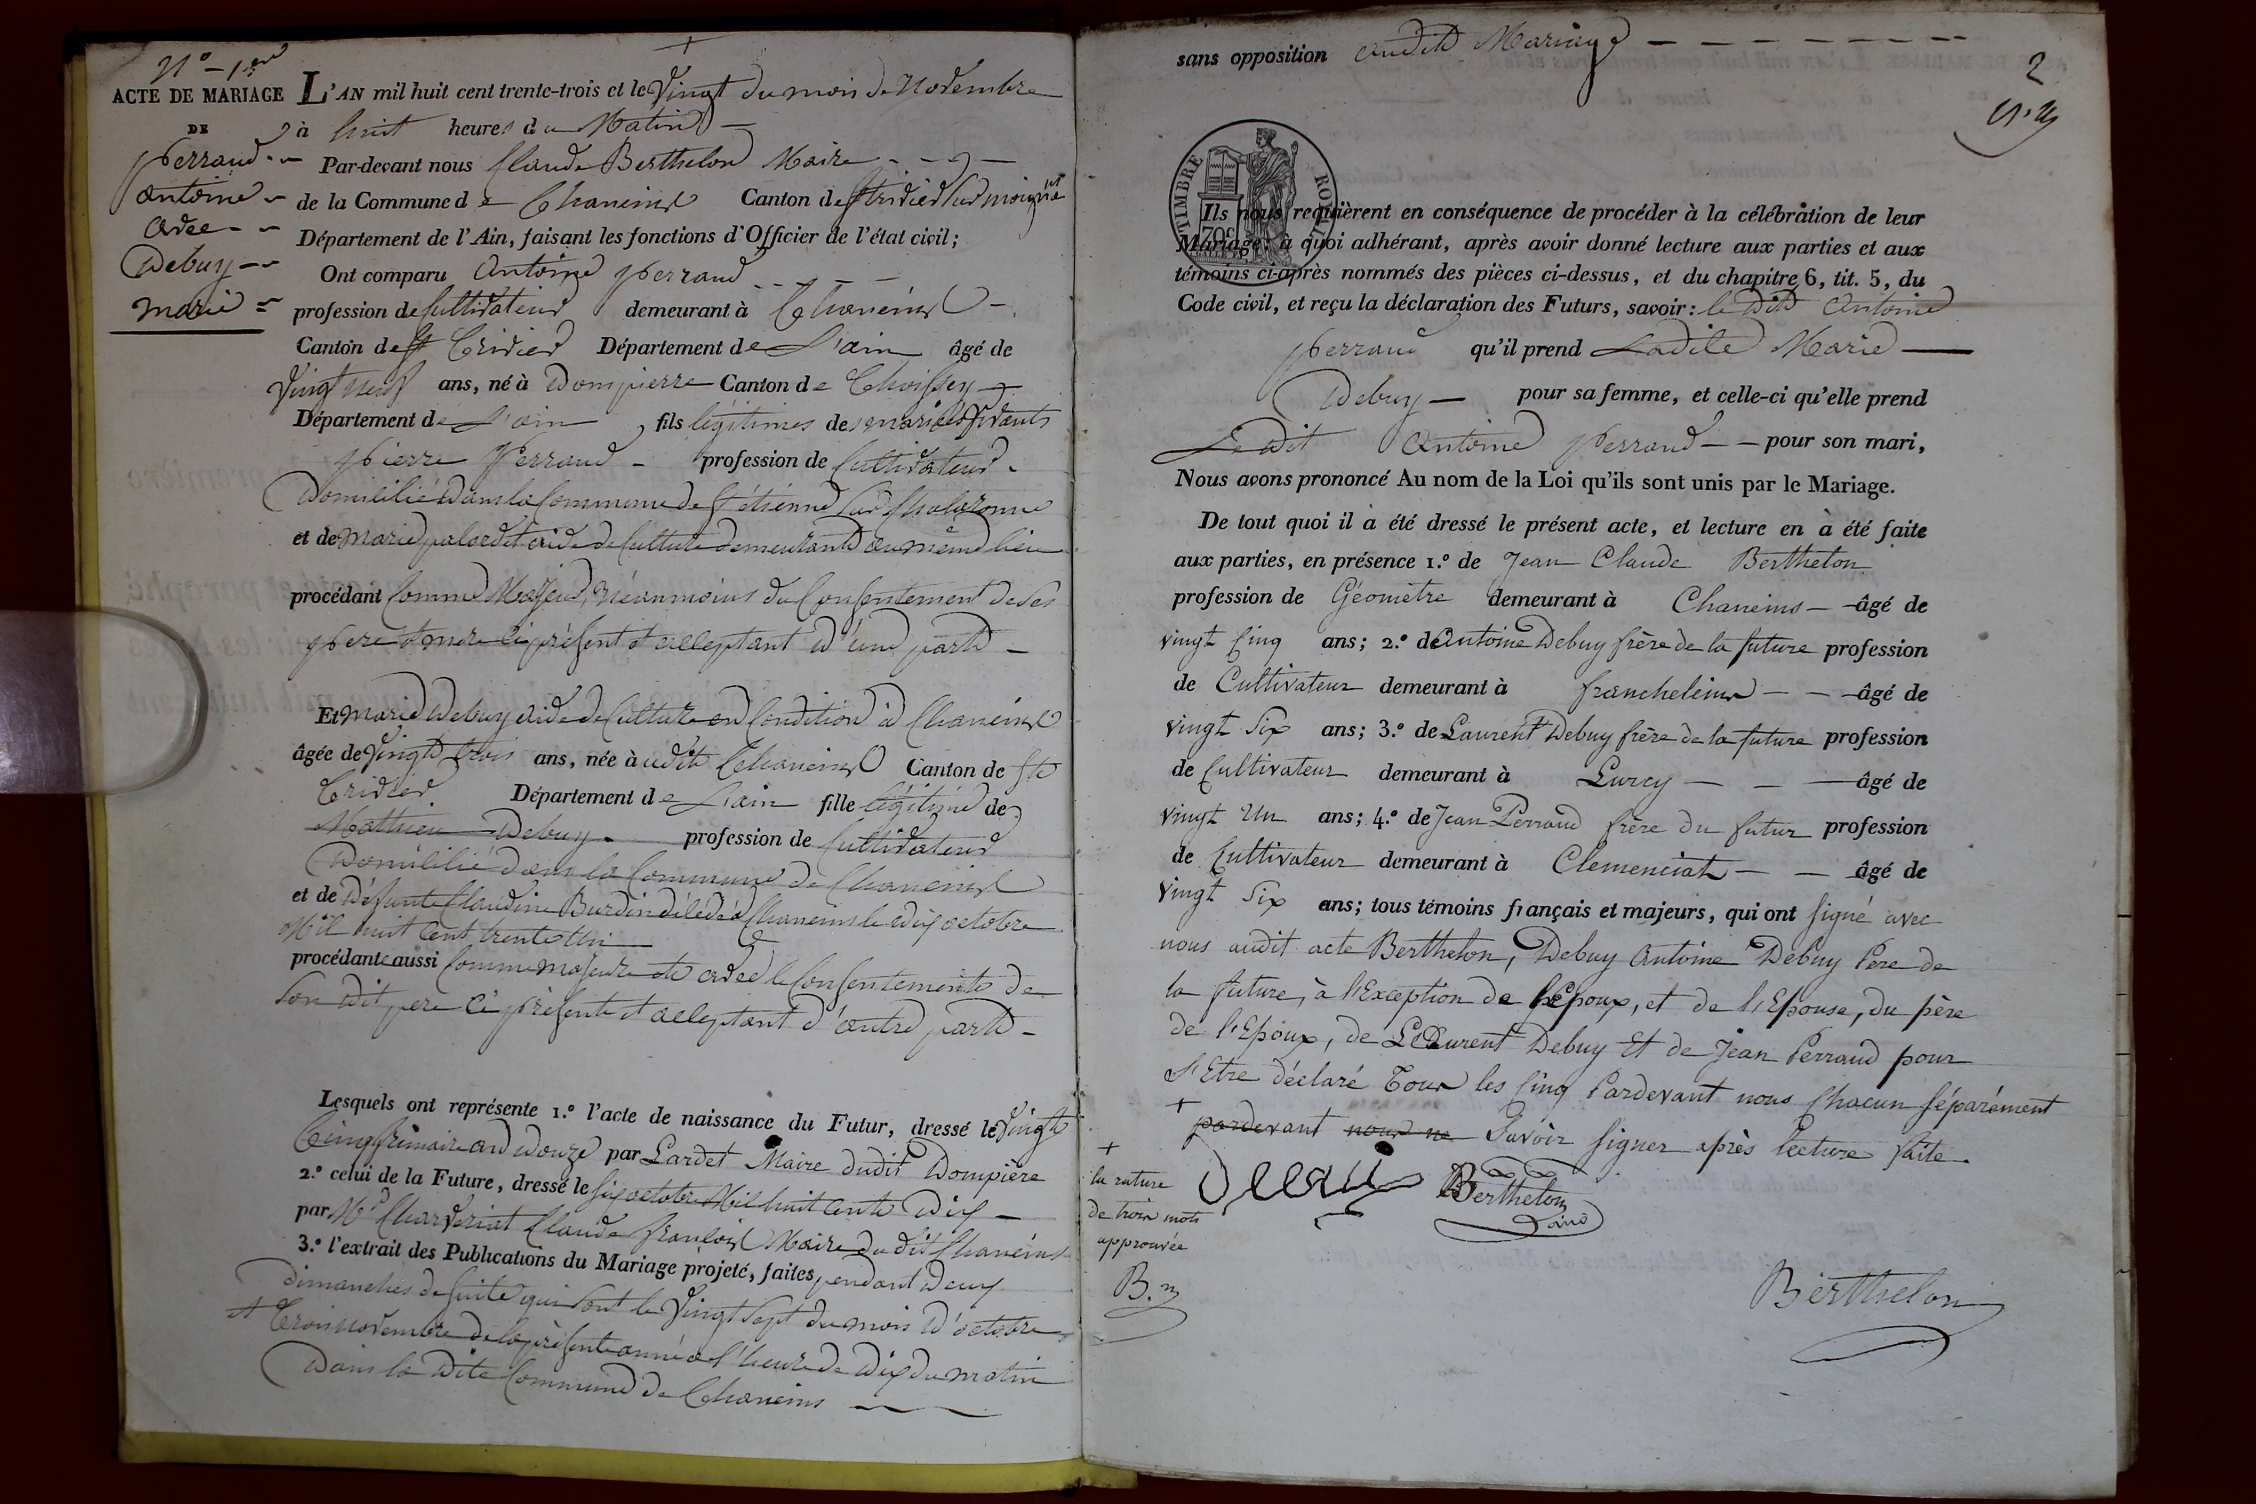 N° 1er
ACTE DE MARIAGE
DE
Perraud
Antoine
avec
Debuy
marie
L'AN mil huit cent trente-trois et le Vingt du mois de Novembre
à huit heures du Matin
Par-devant nous Claude Berthelon Maire
de la Commune de Chaneins Canton de St trivier sur moignat
Département de l'Ain, faisant les fonctions d'Officier de l'état civil;
Ont comparu Antoine Perraud
profession de Cultivateur demeurant à Chaneins
Canton de St Trivier Département de L'ain âgé de
Vingt neuf ans, né à Dompierre Canton de
Département de L'ain fils légitimes des mariés vivants
Pierre Perraud profession de Cultivateur
Domicilié dans la Commune de St étienne sur Chalaronne
et de Marie aide de Culture demeurants au même lieu
procédant Comme Majeur, Néanmoins du Consentement de ses
pere et mere ci présent et acceptant d'une part
Et Marie Debuy aide de Culture en Condition à Chaneins
âgée de Vingt trois ans, née à udit Chaneins Canton de St
Trivier Département de L'ain fille légitime de
Mathieu Debuy profession de Cultivateur
Domicilié dans la Commune de Chaneins
et de Défunte Claudine Burdin décédée à Chaneins le dix octobre
Mil huit Cent trente Un
procédante aussi Comme majeure et avec le Consentement de
Son dit pere ci présent et acceptant d'autre part
Lesquels ont représente 1.° l'acte de naissance du Futur, dressé le Vingt
Cinq frimaire an douze par Lardet Maire dudit Dompière
2.° celui de la Future, dressé le six octobre Mil huit Cent Dix
par Mr Charveriat Claude françois Maire du dit Chaneins
3.° l'extrait des Publications du Mariage projeté, faites pendant deux
dimanches de suite qui sont le Vingt Sept du mois d'octobre
et Trois novembre de la présente année à l'heure de Dix du matin
Dans la Dite Commune de Chaneins
sans opposition audit Mariage
2
TIMBRE ROYAL
70c
Ils nous requièrent en conséquence de procéder à la célébration de leur
Mariage; à quoi adhérant, après avoir donné lecture aux parties et aux
témoins ci-après nommés des pièces ci-dessus, et du chapitre 6, tit. 5, du
Code civil, et reçu la déclaration des Futurs, savoir: le Dit Antoine
Perraud qu'il prend Ladite Marie
Debuy pour sa femme, et celle-ci qu'elle prend
Le Dit Antoine Perraud pour son mari,
Nous avons prononcé Au nom de la Loi qu'ils sont unis par le Mariage.
De tout quoi il à été dressé le présent acte, et lecture en à été faite
aux parties, en présence 1.° de Jean Claude Berthelon
profession de Géomètre demeurant à Chaneins âgé de
vingt Cinq ans; 2.° de Antoine Debuy frère de la future profession
de Cultivateur demeurant à francheleins âgé de
vingt Six ans; 3.° de Laurent Debuy frère de la future profession
de Cultivateur demeurant à Lurcy âgé de
vingt Un ans; 4.° de Jean Perraud frère du futur profession
de Cultivateur demeurant à Clemenciat âgé de
Vingt Six ans; tous témoins français et majeurs, qui ont Signé avec
nous audit acte Berthelon, Debuy Antoine Debuy Pere de
la future, à l'Exception de l'Epoux, et de l'Epouse, du père
de l'Epoux, de Laurent Debuy Et de Jean Perraud pour
s'Etre déclaré Tous les Cinq Pardevant nous Chacun séparément
+ pardevant nous ne Savoir Signer après Lecture faite
+
la rature
de trois mots
approuvée
B.n
Berthelon
Berthelon